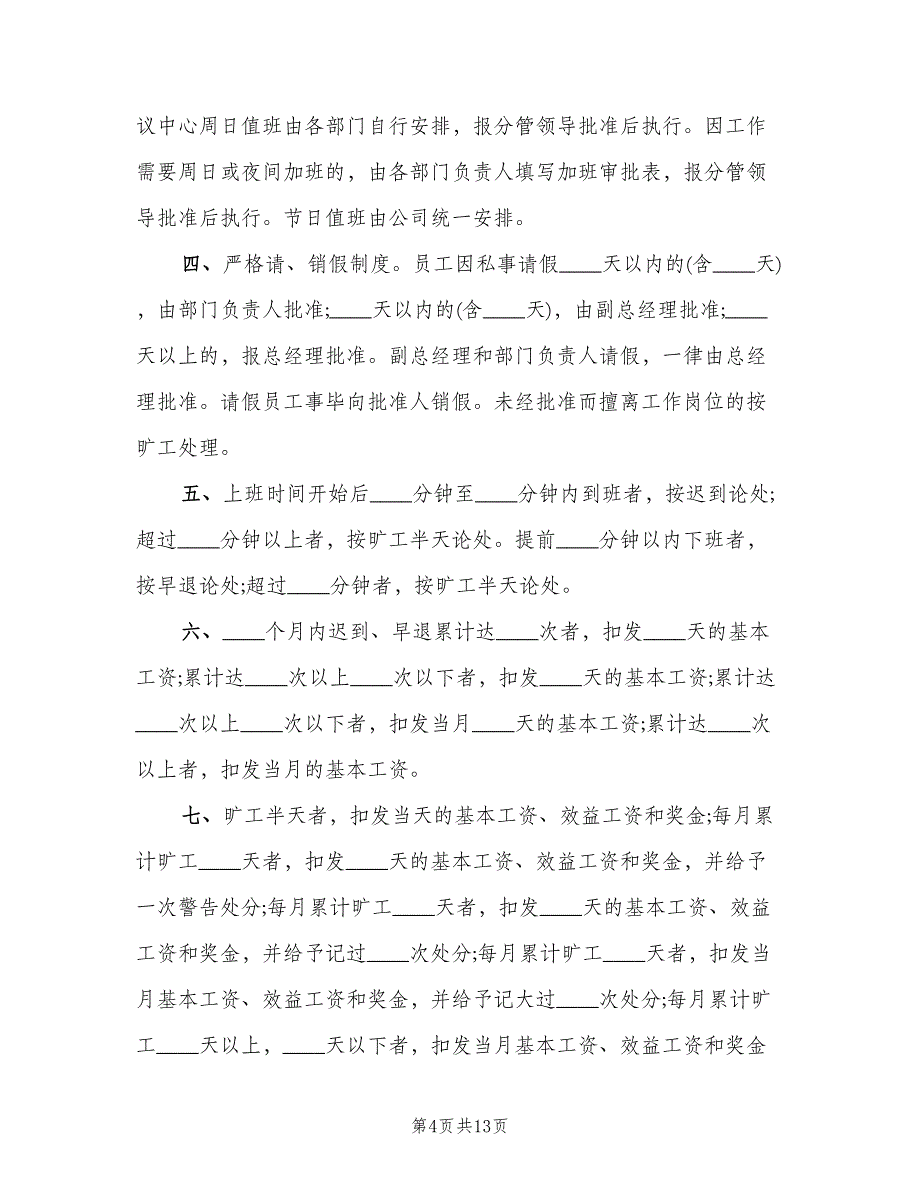 议中心周日值班由各部门自行安排，报分管领导批准后执行。因工作
需要周日或夜间加班的，由各部门负责人填写加班审批表，报分管领
导批准后执行。节日值班由公司统一安排。
四、严格请、销假制度。员工因私事请假____天以内的(含____天)
，由部门负责人批准;____天以内的(含____天)，由副总经理批准;____
天以上的，报总经理批准。副总经理和部门负责人请假，一律由总经
理批准。请假员工事毕向批准人销假。未经批准而擅离工作岗位的按
旷工处理。
五、上班时间开始后____分钟至____分钟内到班者，按迟到论处;
超过____分钟以上者，按旷工半天论处。提前____分钟以内下班者，
按早退论处;超过____分钟者，按旷工半天论处。
六、____个月内迟到、早退累计达____次者，扣发____天的基本
工资;累计达____次以上____次以下者，扣发____天的基本工资;累计达
____次以上____次以下者，扣发当月____天的基本工资;累计达____次
以上者，扣发当月的基本工资。
七、旷工半天者，扣发当天的基本工资、效益工资和奖金;每月累
计旷工____天者，扣发____天的基本工资、效益工资和奖金，并给予
一次警告处分;每月累计旷工____天者，扣发____天的基本工资、效益
工资和奖金，并给予记过____次处分;每月累计旷工____天者，扣发当
月基本工资、效益工资和奖金，并给予记大过____次处分;每月累计旷
工____天以上，____天以下者，扣发当月基本工资、效益工资和奖金
第4页共13页